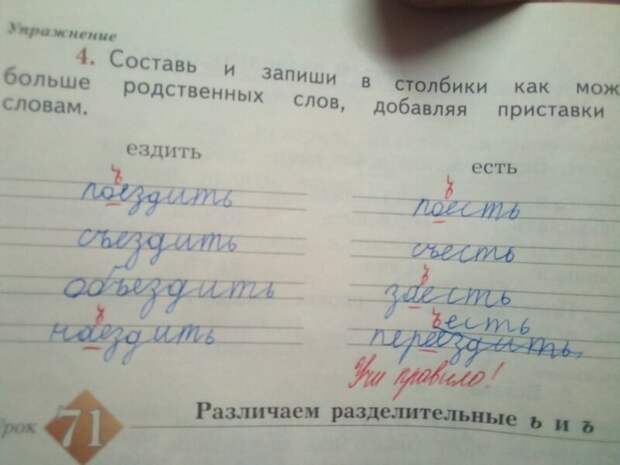 Упражнение
4. Составь и запиши в столбики как мож
больше родственных слов, добавляя приставки
словам.
ездить
есть
ъ
поездить
ъ
поесть
съездить
съесть
объездить
ъ
заесть
ъ
наездить
ъесть
переездить
Учи правило!
рок 71
Различаем разделительные ь и ъ